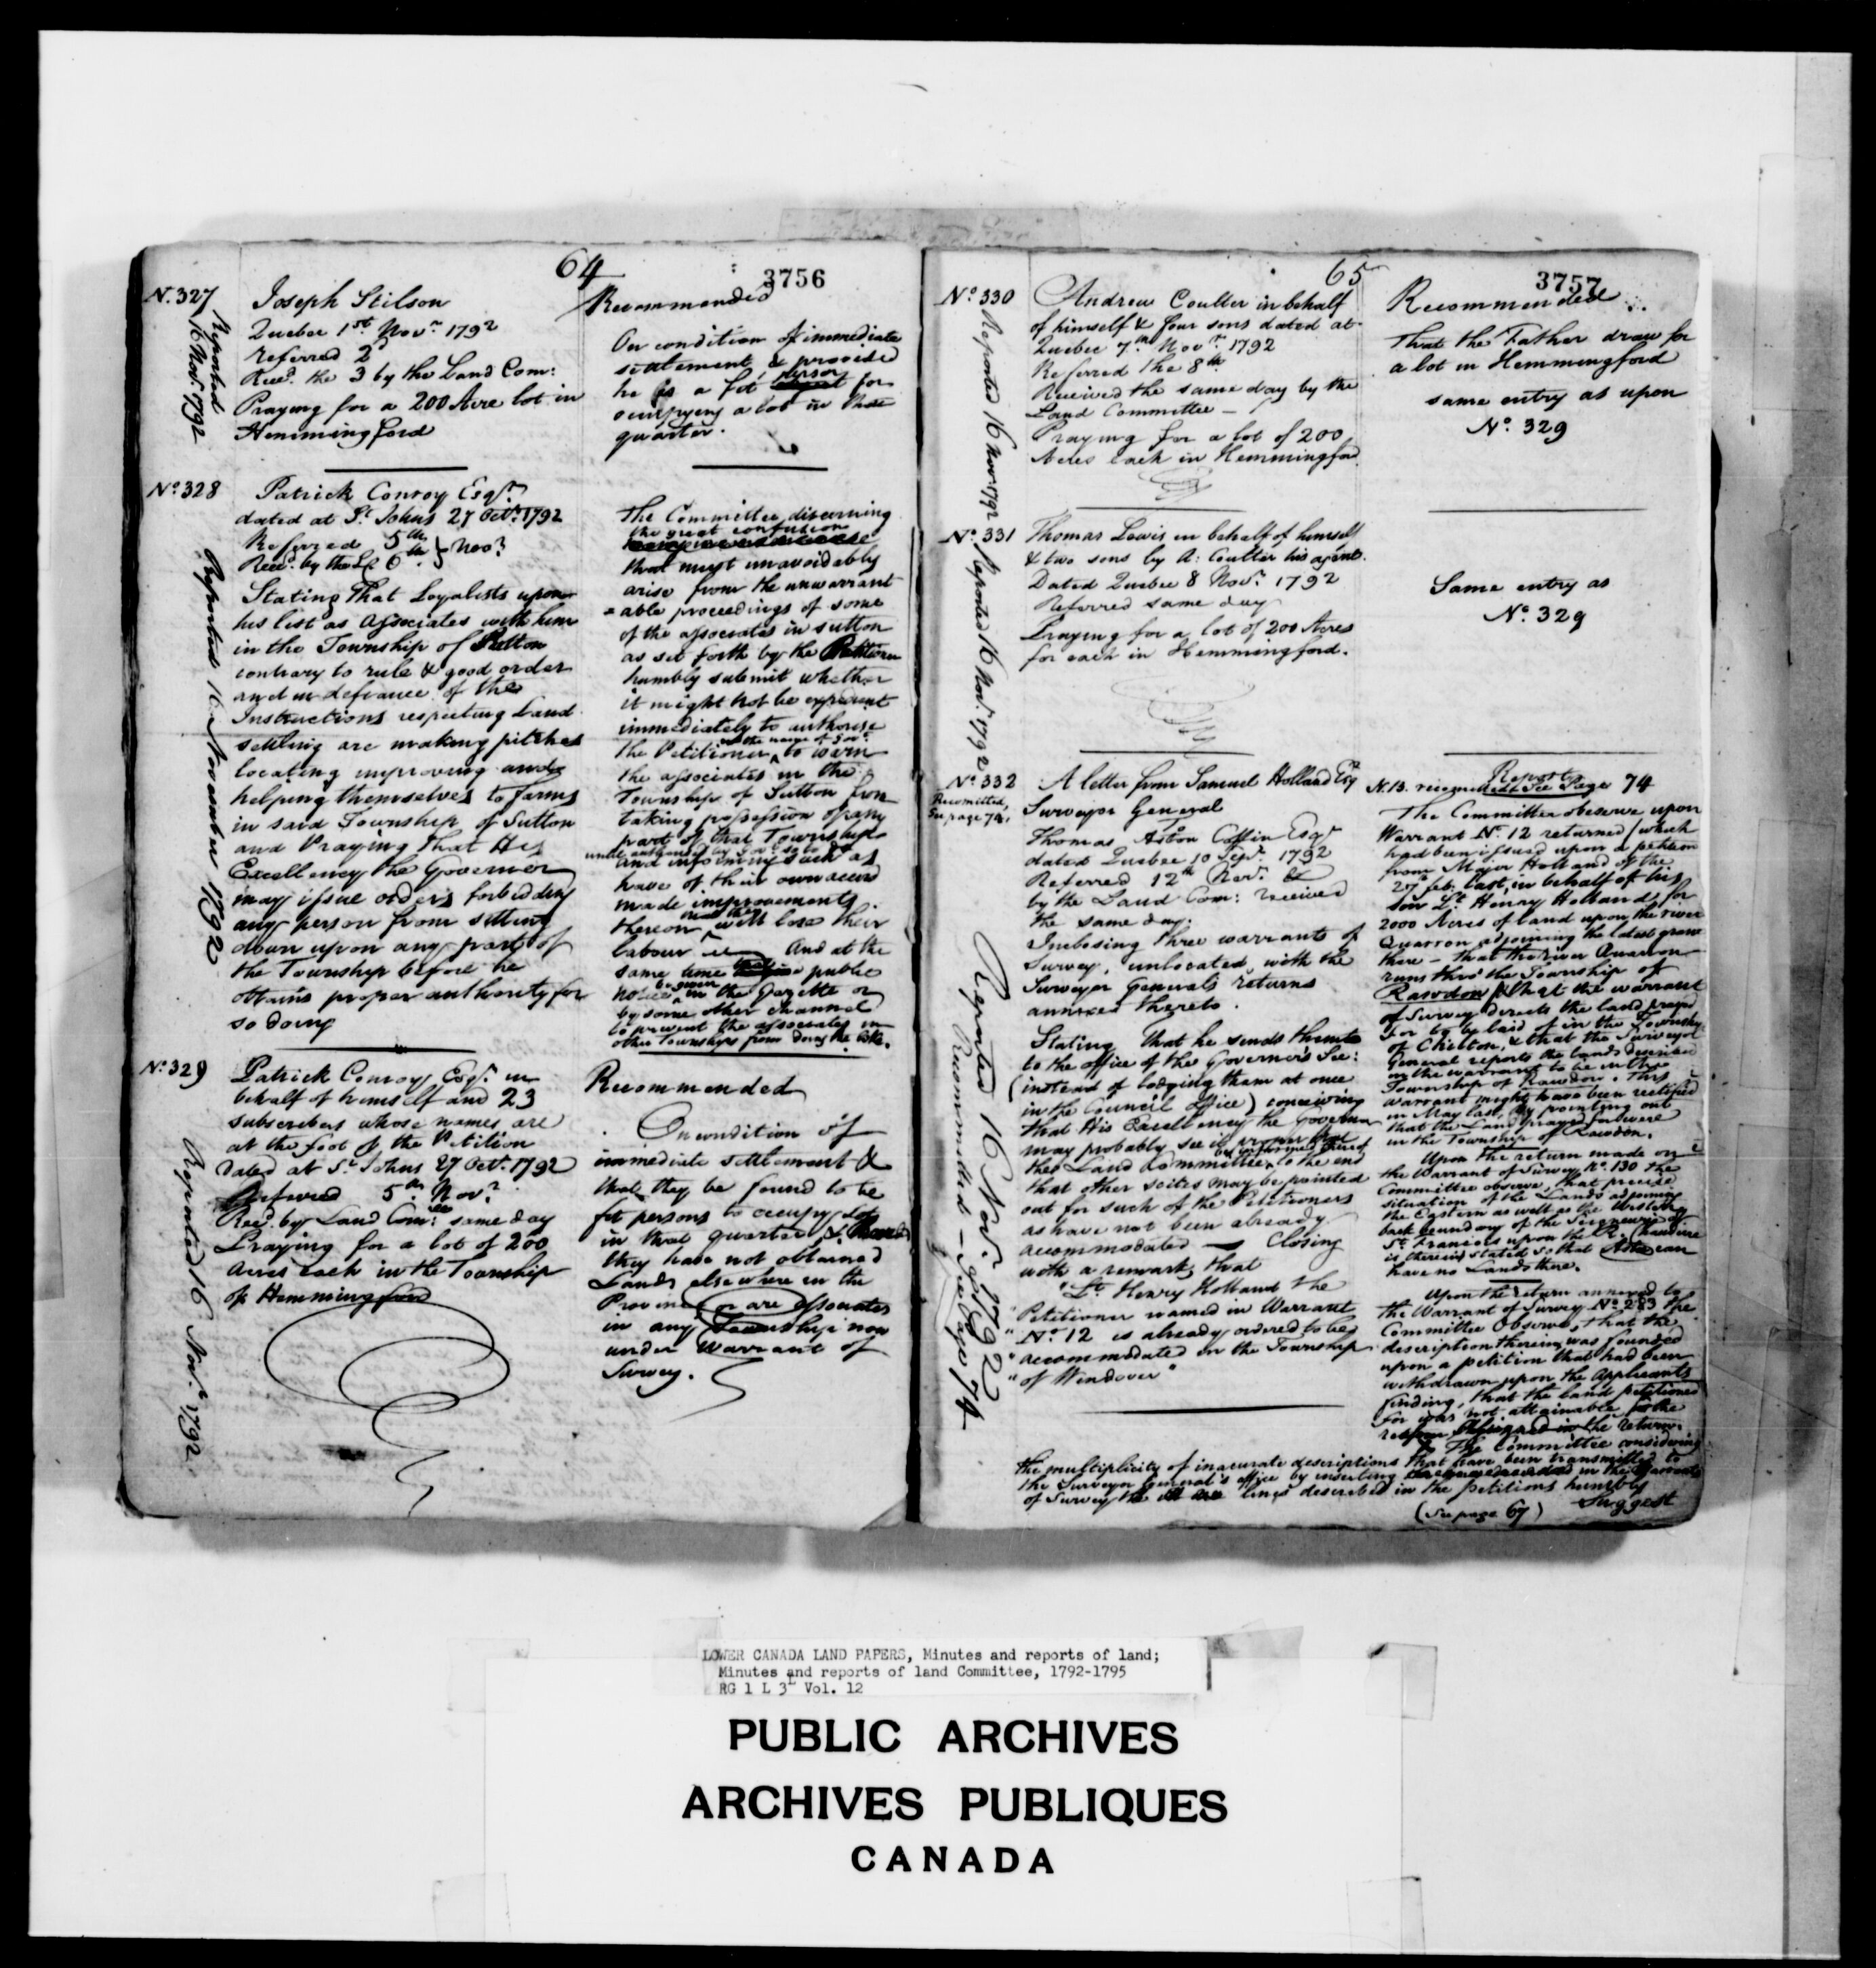 64
3756
N. 327
Reported
16 Nov.r 1792
Joseph Stilson
Quebec 1st Nov.r 1792
referred 2
Rec.d the 3 by the Land Com:
Praying for a 200 Acre lot in
Hemmingford
Recommended
On condition of immediate
settlement, & provided
he is a fit person for
occupying a lot in that
quarter.
No. 328
Reported 16 November 1792
Patrick Conroy Esqr
dated at St Johns 27 Oct.r 1792
Referred 5th } Nov.r
Rec.d by the LC 6th
Stating That Loyalists upon
his list as associates with him
in the Township of Sutton
contrary to rule & good order
and in defiance of the
Instructions respecting Land
settling are making pitches
locating improving and
helping themselves to farms
in said Township of Sutton
and Praying That His
Excellency the Governor
may issue orders forbidding
any person from sitting
down upon any part of
the Township before he
obtains proper authority for
so doing
The Committee discerning
the great confusion
that must unavoidably
arise from the unwarrant
=able proceedings of some
of the associates in Sutton
as set forth by the Petitioner
humbly submit whether
it might not be expedient
immediately to authorise
in the name of Gov.t
the Petitioner to warn
the associates in the
Township of Sutton from
taking possession of any
part of that Township
until authorised by Gov.t so to do
and informing such as
have of their own accord
made improvements
thereon that they will lose their
labour And at the
same time public
notice be given in the Gazette or
by some other channel
to prevent the associates in
other Townships from doing the like.
No. 329
Reported 16 Nov.r 1792
Patrick Conroy Esqr. in
behalf of himself and 23
subscribers whose names are
at the foot of the Petition
Dated at St Johns 27 Oct.r 1792
Referred 5th Nov.r
Rec.d by Land Com:ee same day
Praying for a lot of 200
Acres each in the Township
of Hemmingford
Recommended
On condition of
immediate settlement &
that they be found to be
fit persons to occupy lots
in that quarter &
they have not obtained
Lands elsewhere in the
Province or are associates
in any Township now
under Warrant of
Survey.
65
3757
No. 330
Reported 16 Nov.r 1792
Andrew Coulter in behalf
of himself & four sons dated at
Quebec 7th Nov.r 1792
Referred the 8th
Received the same day by the
Land Committee -
Praying for a lot of 200
Acres each in Hemmingford.
Recommended
That the Father draw for
a lot in Hemmingford
same entry as upon
No. 329
No. 331
Reported 16 Nov.r 1792
Thomas Lewis in behalf of himself
& two sons by A: Coulter his agent.
Dated Quebec 8 Nov.r 1792
Referred same day
Praying for a lot of 200 Acres
for each in Hemmingford.
Same entry as
No. 329
No. 332
Recomitted,
See page 74.
Reported 16 Nov.r 1792
Recommitted - see page 74
A letter from Samuel Holland Esqr
Surveyor General
To
Thomas Aston Coffin Esqr
dated Quebec 10 Sept.r 1792
Referred 12th Nov.r &
by the Land Com: received
the same day.
Inclosing three warrants of
Survey, unlocated, with the
Surveyor Generals returns
annexed thereto.
Stating That he sends them
to the office of the Governor's Sec:
(instead of lodging them at once
in the Council Office) conceiving
that His Excellency the Governor
may probably see it proper that
the Land Committee be informed thereof to the end
that other scites may be pointed
out for such of the Petitioners
as have not been already
accommodated — Closing
with a remark, that
"Lt. Henry Holland the
"Petitioner named in Warrant
"No. 12 is already ordered to be
"accommodated in the Township
"of Wendover"
Report
N.B. recommitted See Page 74
The Committee observe upon
Warrant No. 12 returned (which
had been issued upon a petition
from Major Holland of the
27 feb. last, in behalf of his
son Lt Henry Holland, for
2000 Acres of land upon the river
Quarron adjoining the latest grant
there - that the river Quarron
runs thro' the Township of
Rawdon that the warrant
of Survey directs the land prayed
for to be laid of in the Township
of Chilton, & that the Surveyor
General reports the lands described
in the warrant to be in the
Township of Rawdon. This
warrant might have been rectified
in May last, by pointing out
that the Land prayed for were
in the Township of Rawdon.
Upon the return made on
the Warrant of Survey No. 130 the
Committee observe, that precise
situation of the Lands adjoining
the Eastern as well as the Western
back boundary of the Seigneurie of
St Francois upon the R. Chaudiere
is therein stated so that can
have no Lands there.
Upon the return annexed to
the Warrant of Survey No. 283 the
Committee Observe, that the
description therein was founded
upon a petition that had been
withdrawn upon the Applicants
finding, that the land petitioned
for was not attainable, for the
reason assigned in the return.
The Committee considering
the multiplicity of inaccurate descriptions that have been transmitted to
the Surveyor General's office by inserting in the Warrants
of Survey the lines described in the petitions humbly
Suggest
(See page 67)
LOWER CANADA LAND PAPERS, Minutes and reports of land;
Minutes and reports of land Committee, 1792-1795
RG 1 L 3L Vol. 12
PUBLIC ARCHIVES
ARCHIVES PUBLIQUES
CANADA